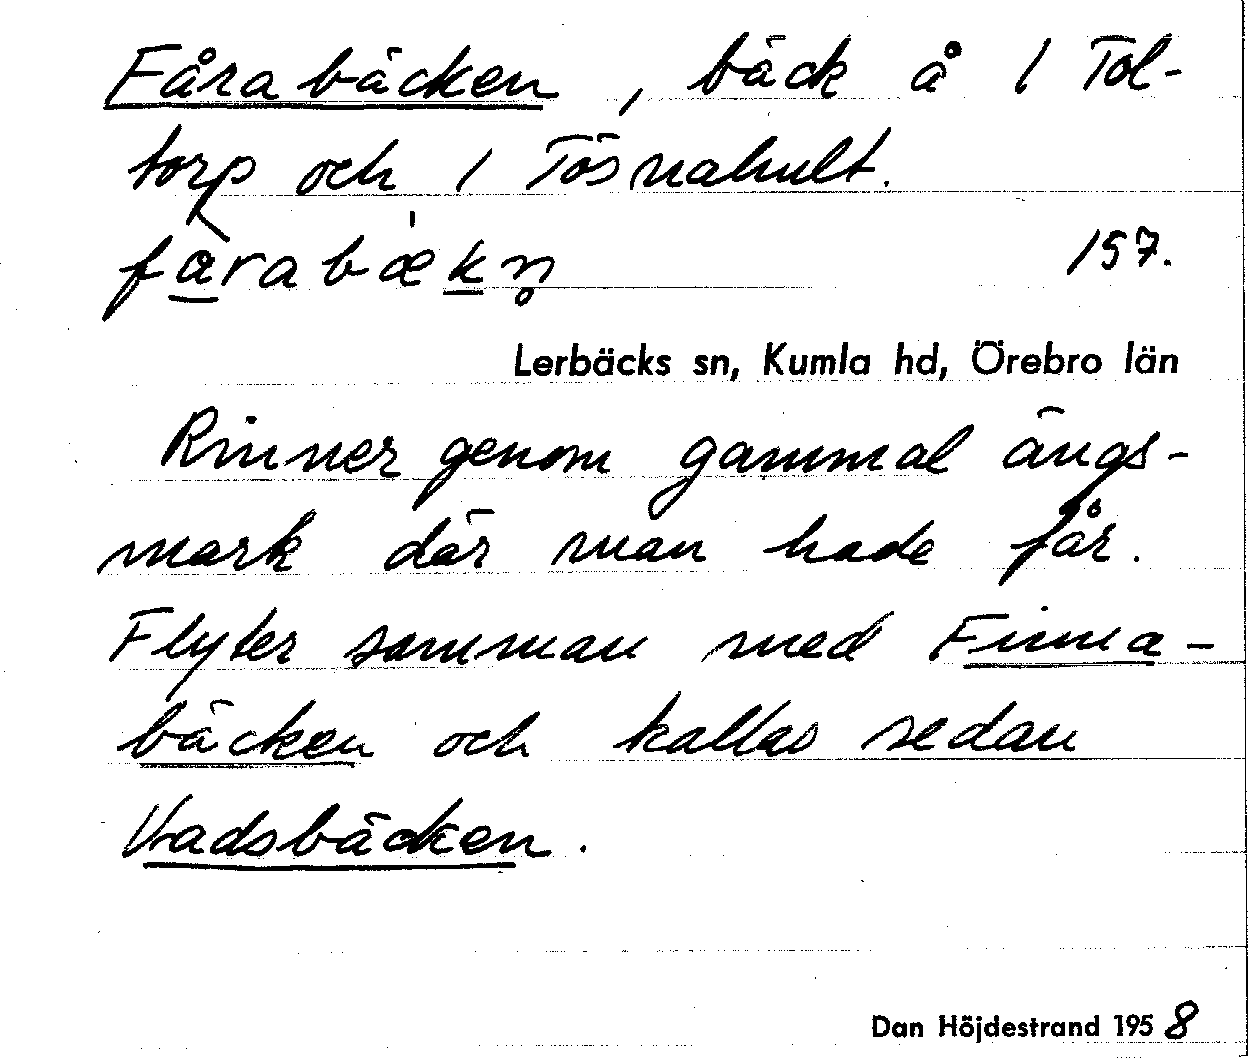 Fårabäcken, bäck å 1 Tol-
torp och 1 Tösnahult.
fàrabæ̍kn̥ 157.
Lerbäcks sn, Kumla hd, Örebro län
Rinner genom gammal ängs-
mark där man hade får.
Flyter samman med Finna-
bäcken och kallas sedan
Vadsbäcken.
Dan Höjdestrand 1958